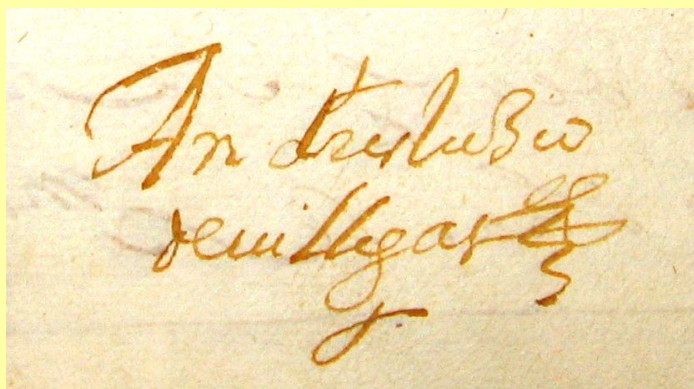 An dres luzio
de uillegas